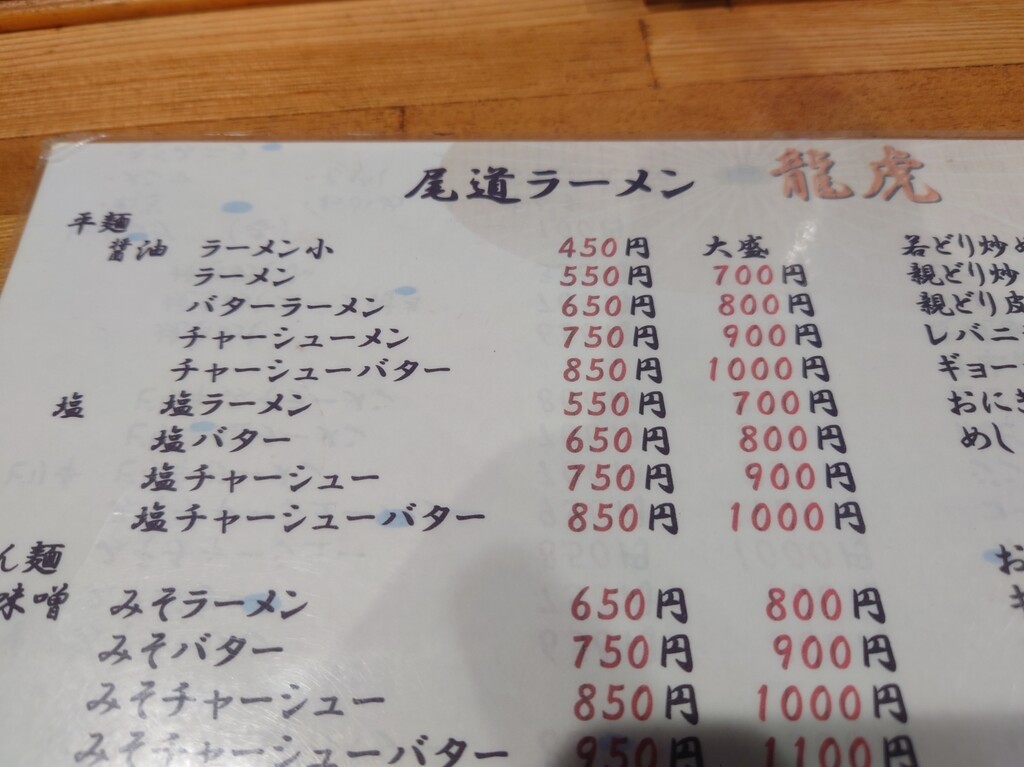 尾道ラーメン 龍虎
平麺
醤油 ラーメン小 450円 大盛
ラーメン 550円 700円
バターラーメン 650円 800円
チャーシューメン 750円 900円
チャーシューバター 850円 1000円
塩 塩ラーメン 550円 700円
塩バター 650円 800円
塩チャーシュー 750円 900円
塩チャーシューバター 850円 1000円
ん麺
味噌 みそラーメン 650円 800円
みそバター 750円 900円
みそチャーシュー 850円 1000円
みそチャーシューバター 950円 1100円
若どり炒め
親どり炒
親どり皮
レバニ
ギョー
おにぎ
めし
お